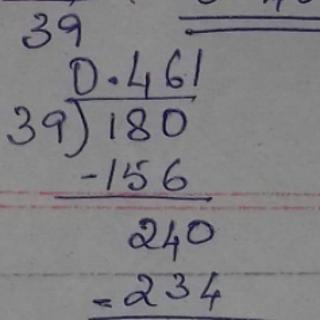 39
0.461
39)180
-156
240
-234